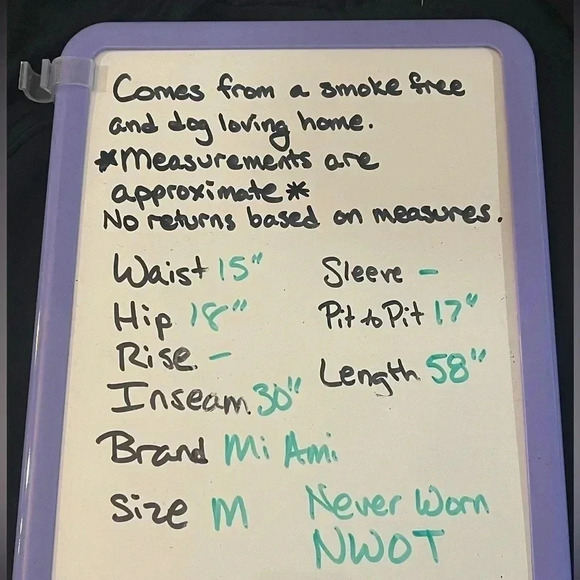 Comes from a smoke free
and dog loving home.
*Measurements are
approximate*
No returns based on measures.
Waist 15" Sleeve -
Hip 18" Pit to Pit 17"
Rise -
Inseam 30" Length 58"
Brand Mi Ami
Size M Never Worn
NWOT